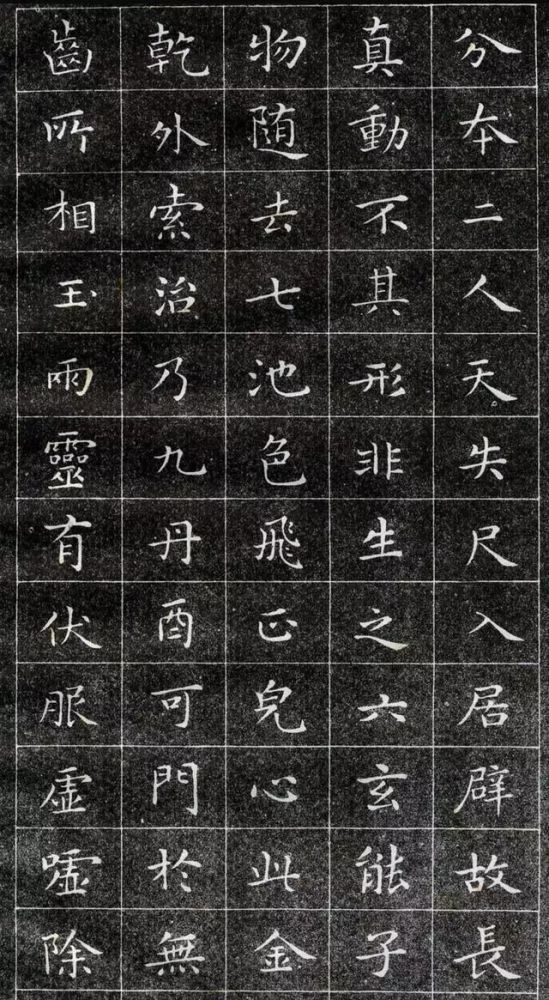 分本二人天失尺入居辟故長
真動不其形非生之六玄能子
物随去七池色飛正皃心此金
乾外索治乃九丹酉可門於無
齒所相玉雨靈有伏服虛噓除